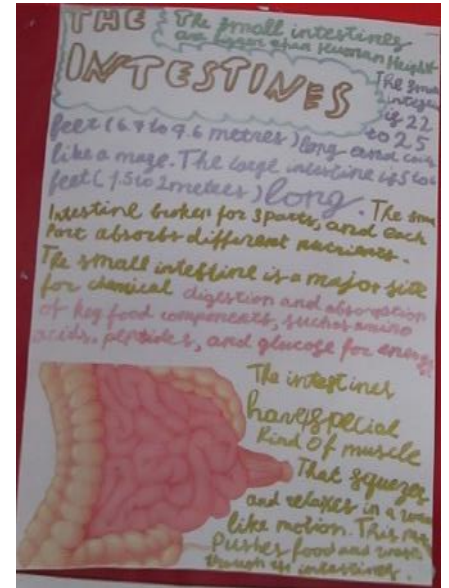 THE
INTESTINES
The small intestines
are bigger than Human Height
The sma
intesti
is 22
to 25
feet (6.7 to 9.6 metres) long and coils
like a maze. The large intestine is 5 to 6
feet (1.5 to 2 metres) long. The sma
Intestine broken for 3 parts, and each
Part absorbs different nutrients.
The small intestine is a major site
for chemical digestion and absorption
of key food components, such as amino
acids, peptides, and glucose for energy
The intestines
have special
Kind Of muscle
That squezes
and relaxes in a
like motion. This
Pushes food and
through the intestines.